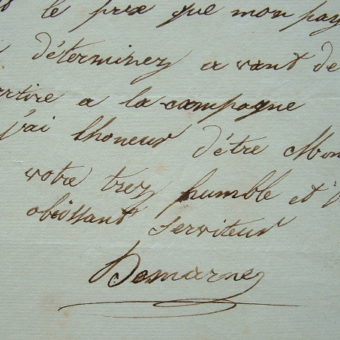 le prix que mon pay
déterminez avant de
artire a la campagne
j'ai lhoneur d'être Mon
votre trez humble et
obéissant serviteur
Demarne